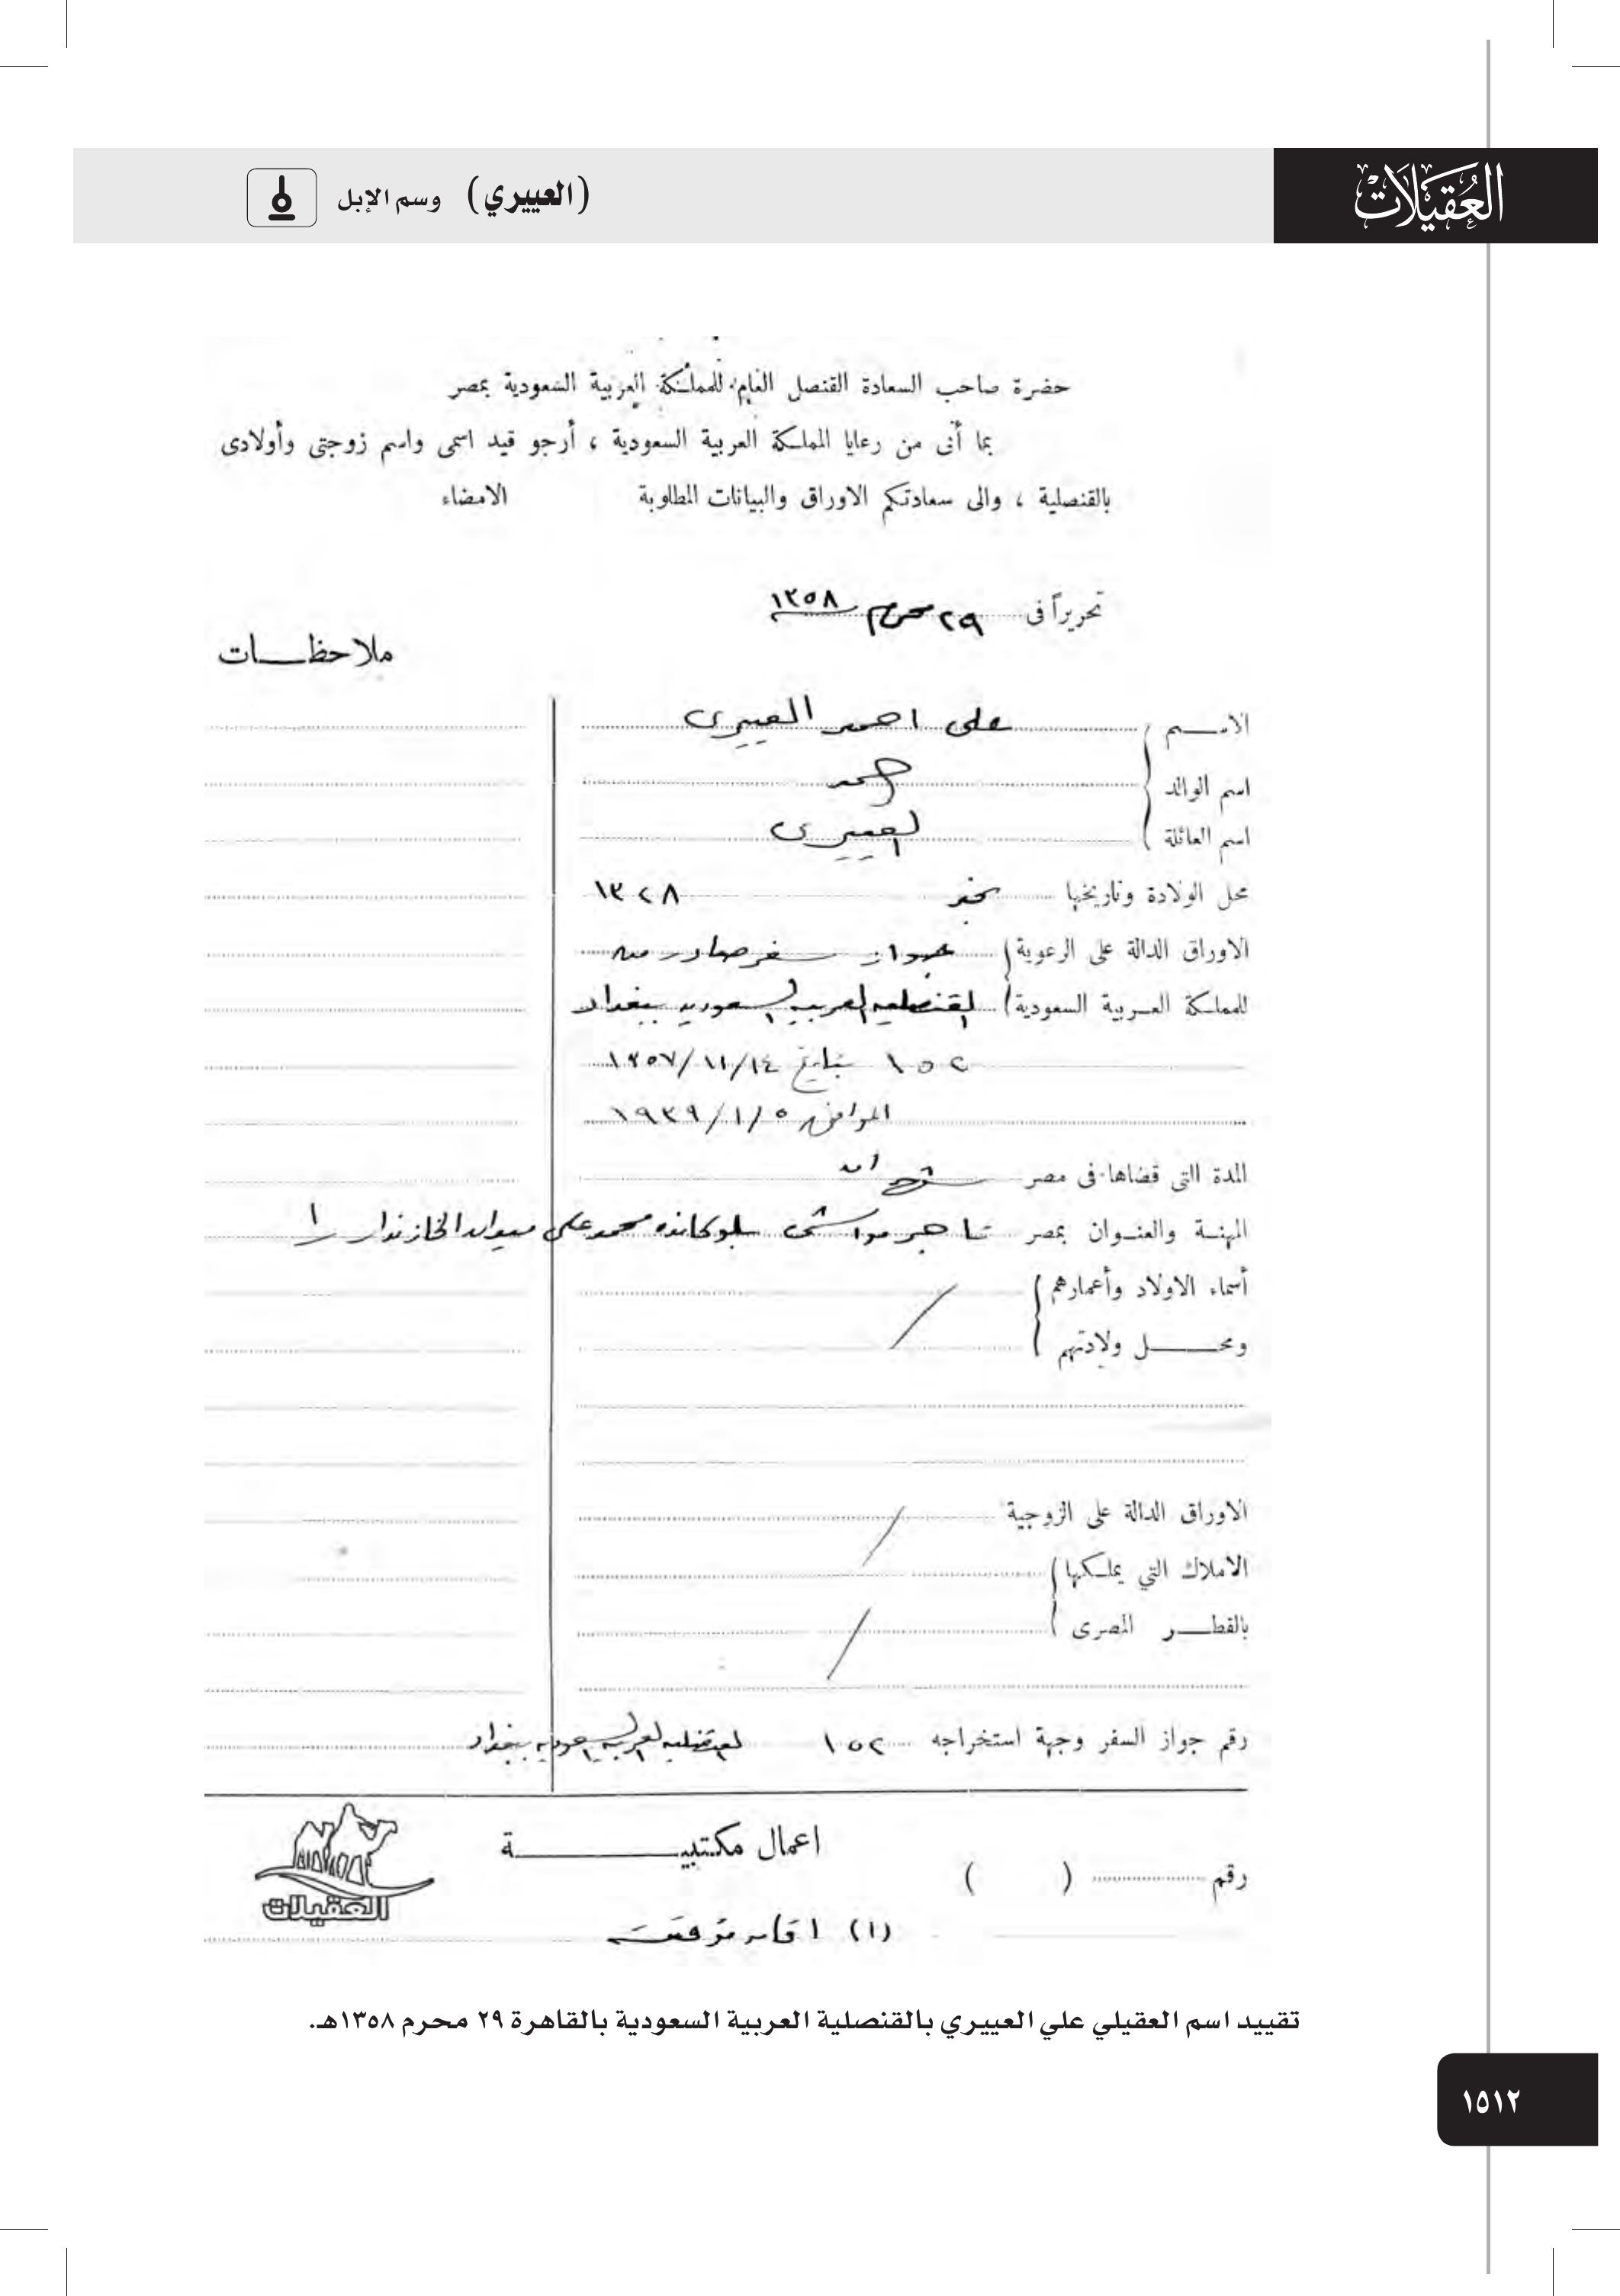 العُقَيْلَاتْ
(العييري) وسم الإبل
حضرة صاحب السعادة القنصل العام للمملكة العربية السعودية بمصر
بما أنى من رعايا المملكة العربية السعودية ، أرجو قيد اسمى واسم زوجتى وأولادى
بالقنصلية ، والى سعادتكم الاوراق والبيانات المطلوبة الامضاء
تحريراً فى ٢٩ محرم ١٣٥٨
ملاحظـــات
الاســـم على احمد العييرى
اسم الوالد احمد
اسم العائلة العييرى
محل الولادة وتاريخها بنجد ١٣٢٨
الاوراق الدالة على الرعوية جواز سفر صادر من
للمملكة العربية السعودية القنصلية العربية السعودية ببغداد
١٥٢ بتاريخ ١٣٥٧/١١/١٤
الموافق ١٩٣٩/١/٥
المدة التى قضاها فى مصر شهران
المهنة والعنوان بمصر تاجر مواشى بلوكانده محمد على ميدان الخازندار ١
أسماء الاولاد وأعمارهم
ومحــــل ولادتهم
الاوراق الدالة على الزوجية
الاملاك التي يملكها
بالقطــر المصرى
رقم جواز السفر وجهة استخراجه ١٥٢ القنصلية العربية السعودية ببغداد
اعمال مكتبيــــــة
رقم ( )
العقيلات
(١) اقامه مؤقته
تقييد اسم العقيلي علي العييري بالقنصلية العربية السعودية بالقاهرة ٢٩ محرم ١٣٥٨هـ.
١٥١٢